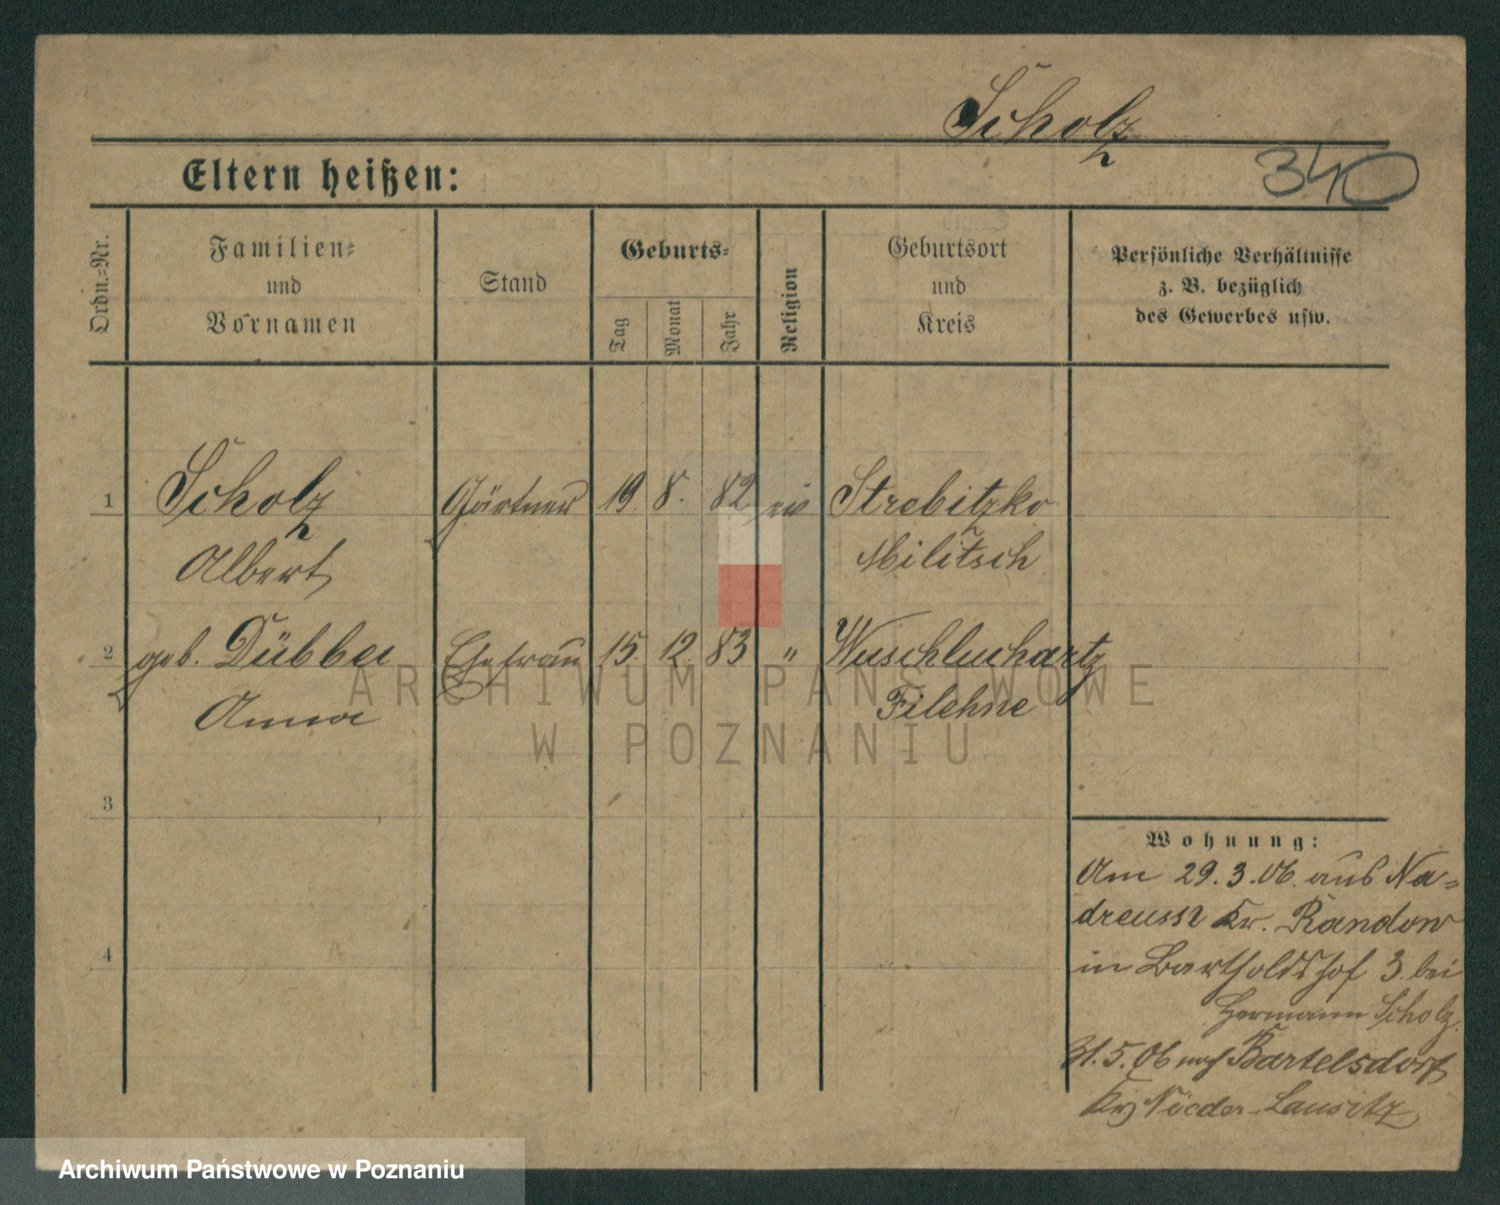 Scholz
340
Eltern heißen:
Ordn.-Nr.
Familien- und Vornamen
Stand
Geburts-
Tag
Monat
Jahr
Religion
Geburtsort und Kreis
Persönliche Verhältnisse
z. B. bezüglich
des Gewerbes usw.
1 Scholz Gärtner 19. 8. 82 ev Strebitzko
Albert Militsch
2 geb. Dübber Ehefrau 15. 12. 83 " Wuschluchartz
Anna Filehne
3
4
Wohnung:
Am 29.3.06. aus Na=
dreusse Kr. Randow
in Bartholdshof 3. bei
Hermann Scholz.
31.5.06 nach Bartelsdorf
Kr. Nieder-Lausitz
ARCHIWUM PAŃSTWOWE
W POZNANIU
Archiwum Państwowe w Poznaniu